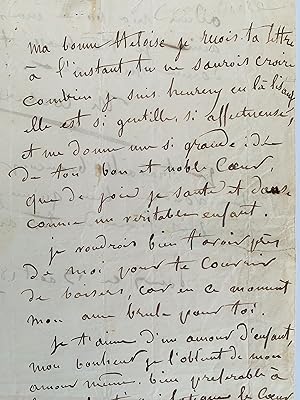 ma bonne Heloise je reçois ta lettre
à l'instant, tu ne saurois croire
combien je suis heureux en la lisant
elle est si gentille, si affectueuse,
et me donne une si grande idé
de ton bon et noble Cœur,
que de joie je saute et danse
comme un veritable enfant.
je voudrois bien t'avoir près
de moi pour te couvrir
de baisers, car en ce moment
mon ame brule pour toi.
je t'aime d'un amour d'enfant,
mon bonheur je l'obtient de mon
amour même, bien preferable à
le Cœur